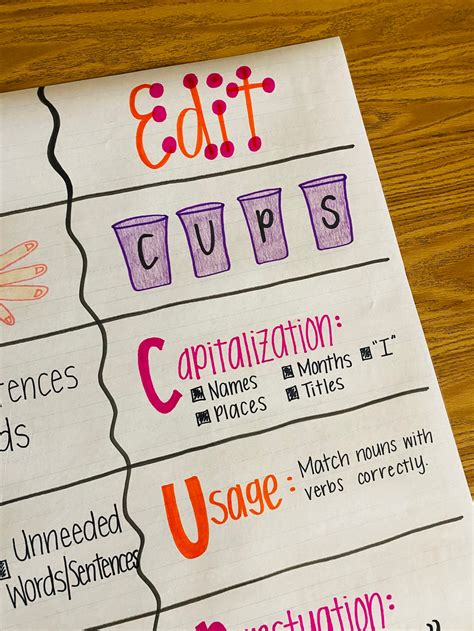 Edit
CUPS
Capitalization:
Names
Months
"I"
Places
Titles
Usage: Match nouns with
verbs correctly.
Unneeded
Words/Sentences